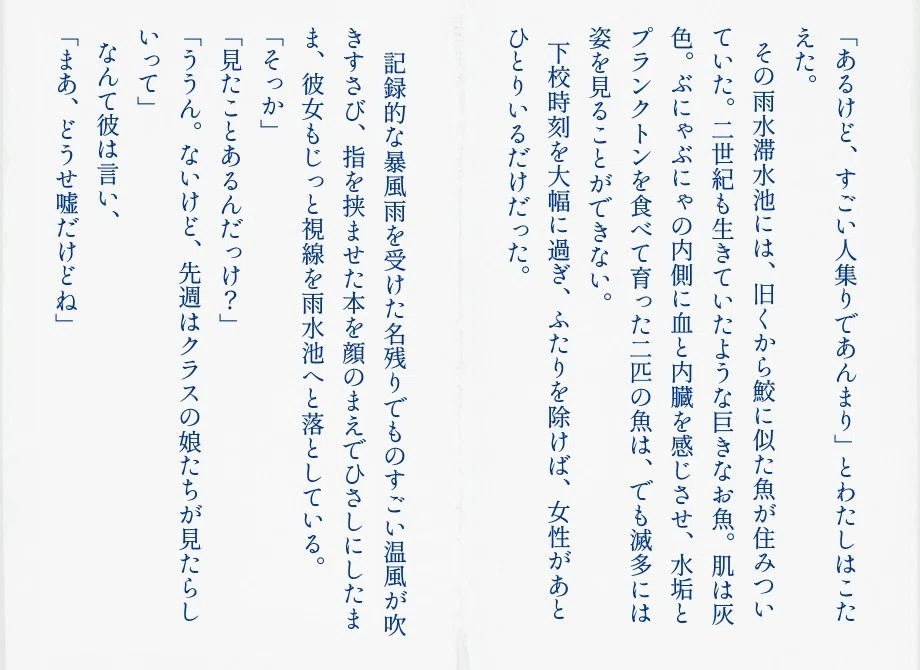 「あるけど、すごい人集りであんまり」とわたしはこた
えた。
その雨水滞水池には、旧くから鮫に似た魚が住みつい
ていた。二世紀も生きていたような巨きなお魚。肌は灰
色。ぶにゃぶにゃの内側に血と内臓を感じさせ、水垢と
プランクトンを食べて育った二匹の魚は、でも滅多には
姿を見ることができない。
下校時刻を大幅に過ぎ、ふたりを除けば、女性があと
ひとりいるだけだった。
記録的な暴風雨を受けた名残りでものすごい温風が吹
きすさび、指を挟ませた本を顔のまえでひさしにしたま
ま、彼女もじっと視線を雨水池へと落としている。
「そっか」
「見たことあるんだっけ？」
「ううん。ないけど、先週はクラスの娘たちが見たらし
いって」
なんて彼は言い、
「まあ、どうせ嘘だけどね」